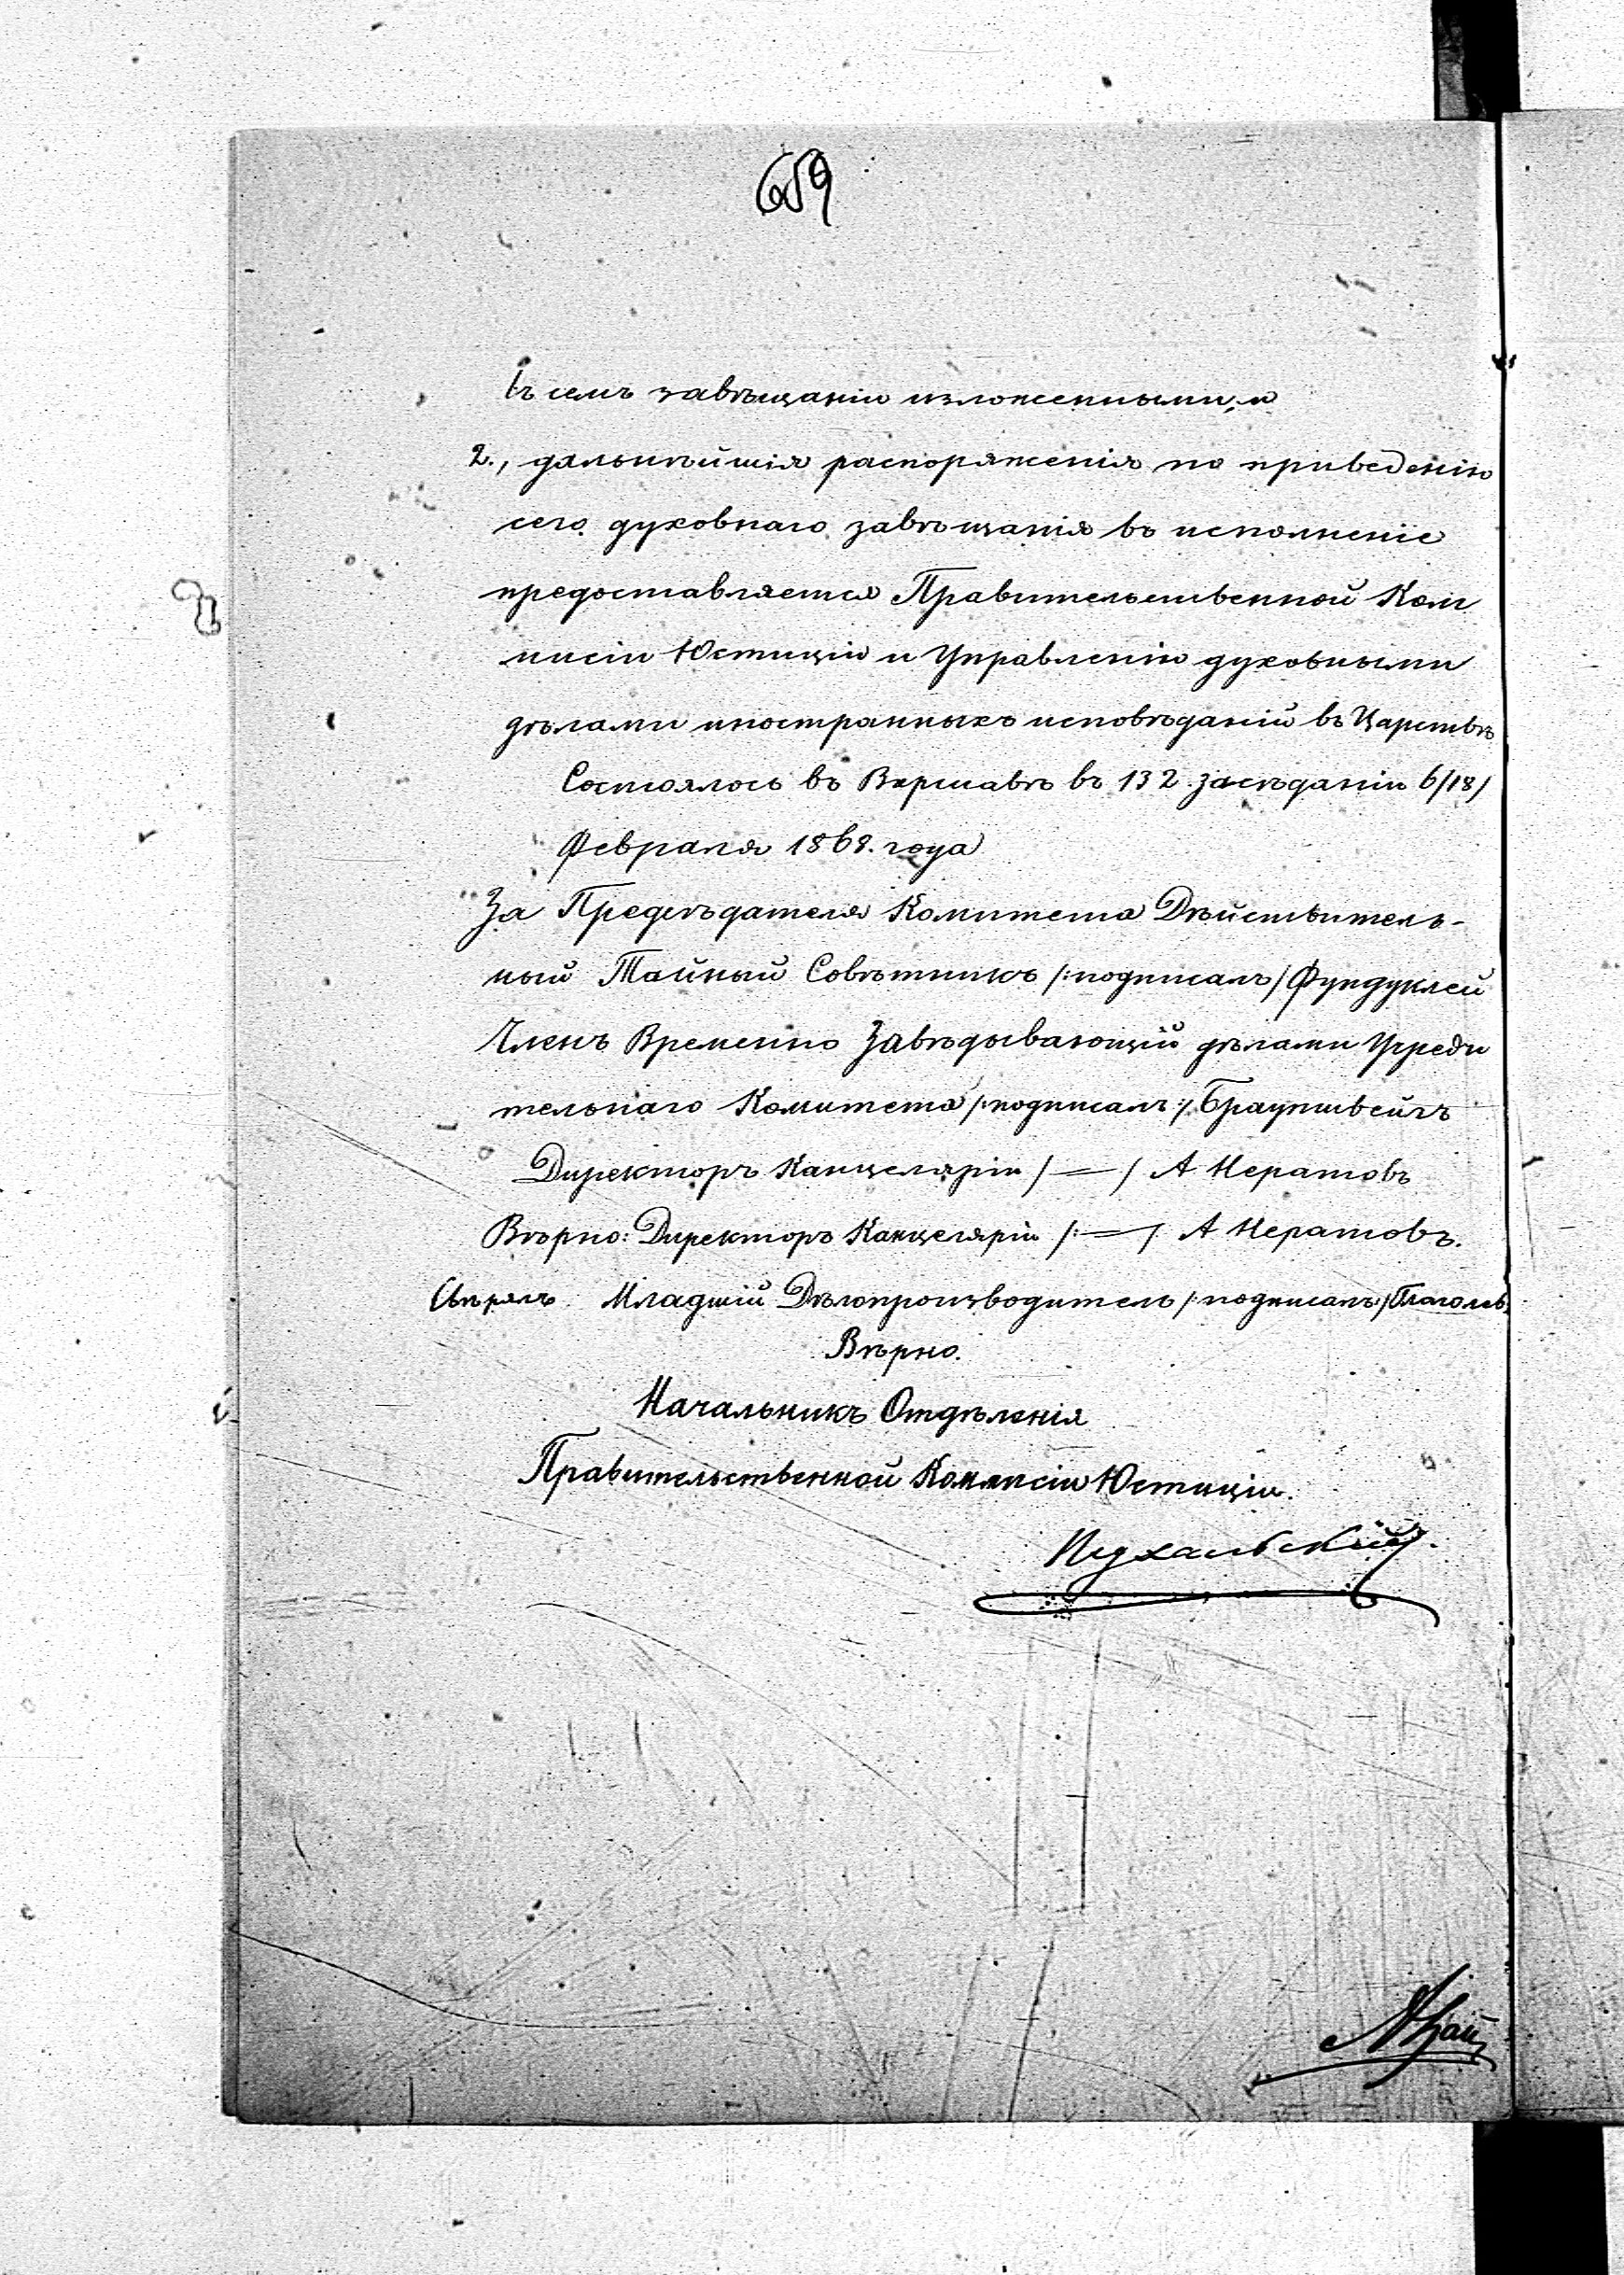 659
въ семъ завѣщаніи изложенными, и
2., дальнѣйшія распоряженія по приведенію
сего духовнаго завѣщанія въ исполненіе
предоставляется Правительственной Ком
мисіи Юстиціи и Управленію духовными
дѣлами иностранныхъ исповѣданій въ Царствѣ
Состоялось въ Варшавѣ въ 132 засѣданіи 6/18/
Февраля 1868. года
За Предсѣдателя Комитета Дѣйствитель-
ный Тайный Совѣтникъ /:подписалъ/ Фундуклей
Членъ Временно Завѣдывающій дѣлами Учреди
тельнаго Комитета /:подписалъ:/ Брауншвейгъ
Директоръ Канцеляріи / = / А Нератовъ
Вѣрно: Директоръ Канцеляріи /: = / А Нератовъ.
Свѣрялъ Младшій Дѣлопроизводитель /:подписалъ:/ Глаголев
Вѣрно.
Начальникъ Отдѣленія
Правительственной Коммисіи Юстиціи.